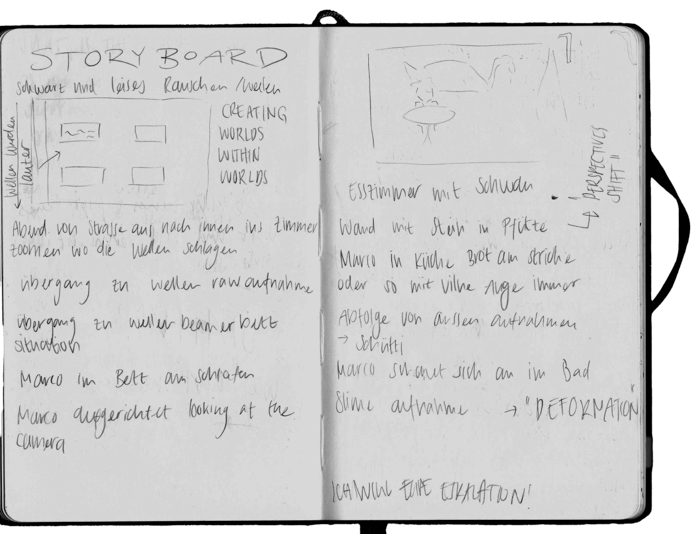 STORYBOARD
schwarz und leises Rauschen/wellen
wellen wurden
lauter
CREATING
WORLDS
WITHIN
WORLDS
Abend von Strasse aus nach innen ins Zimmer
zoomen wo die wellen schlagen
übergang zu wellen rawaufnahme
übergang zu wellen beamer bett
situation
Marco im Bett am schlafen
Marco aufgerichtet looking at the
camera
Esszimmer mit
"PERSPECTIVES
SHIFT"
Wand mit Stein in Pfütze
Marco in Küche Brot am striche
oder so mit Auge immer
Abfolge von aussen aufnahmen
→ Schütti
Marco schaut sich an im Bad
Slime aufnahme → "DEFORMATION"
ICH WILL EINE ESKALATION!